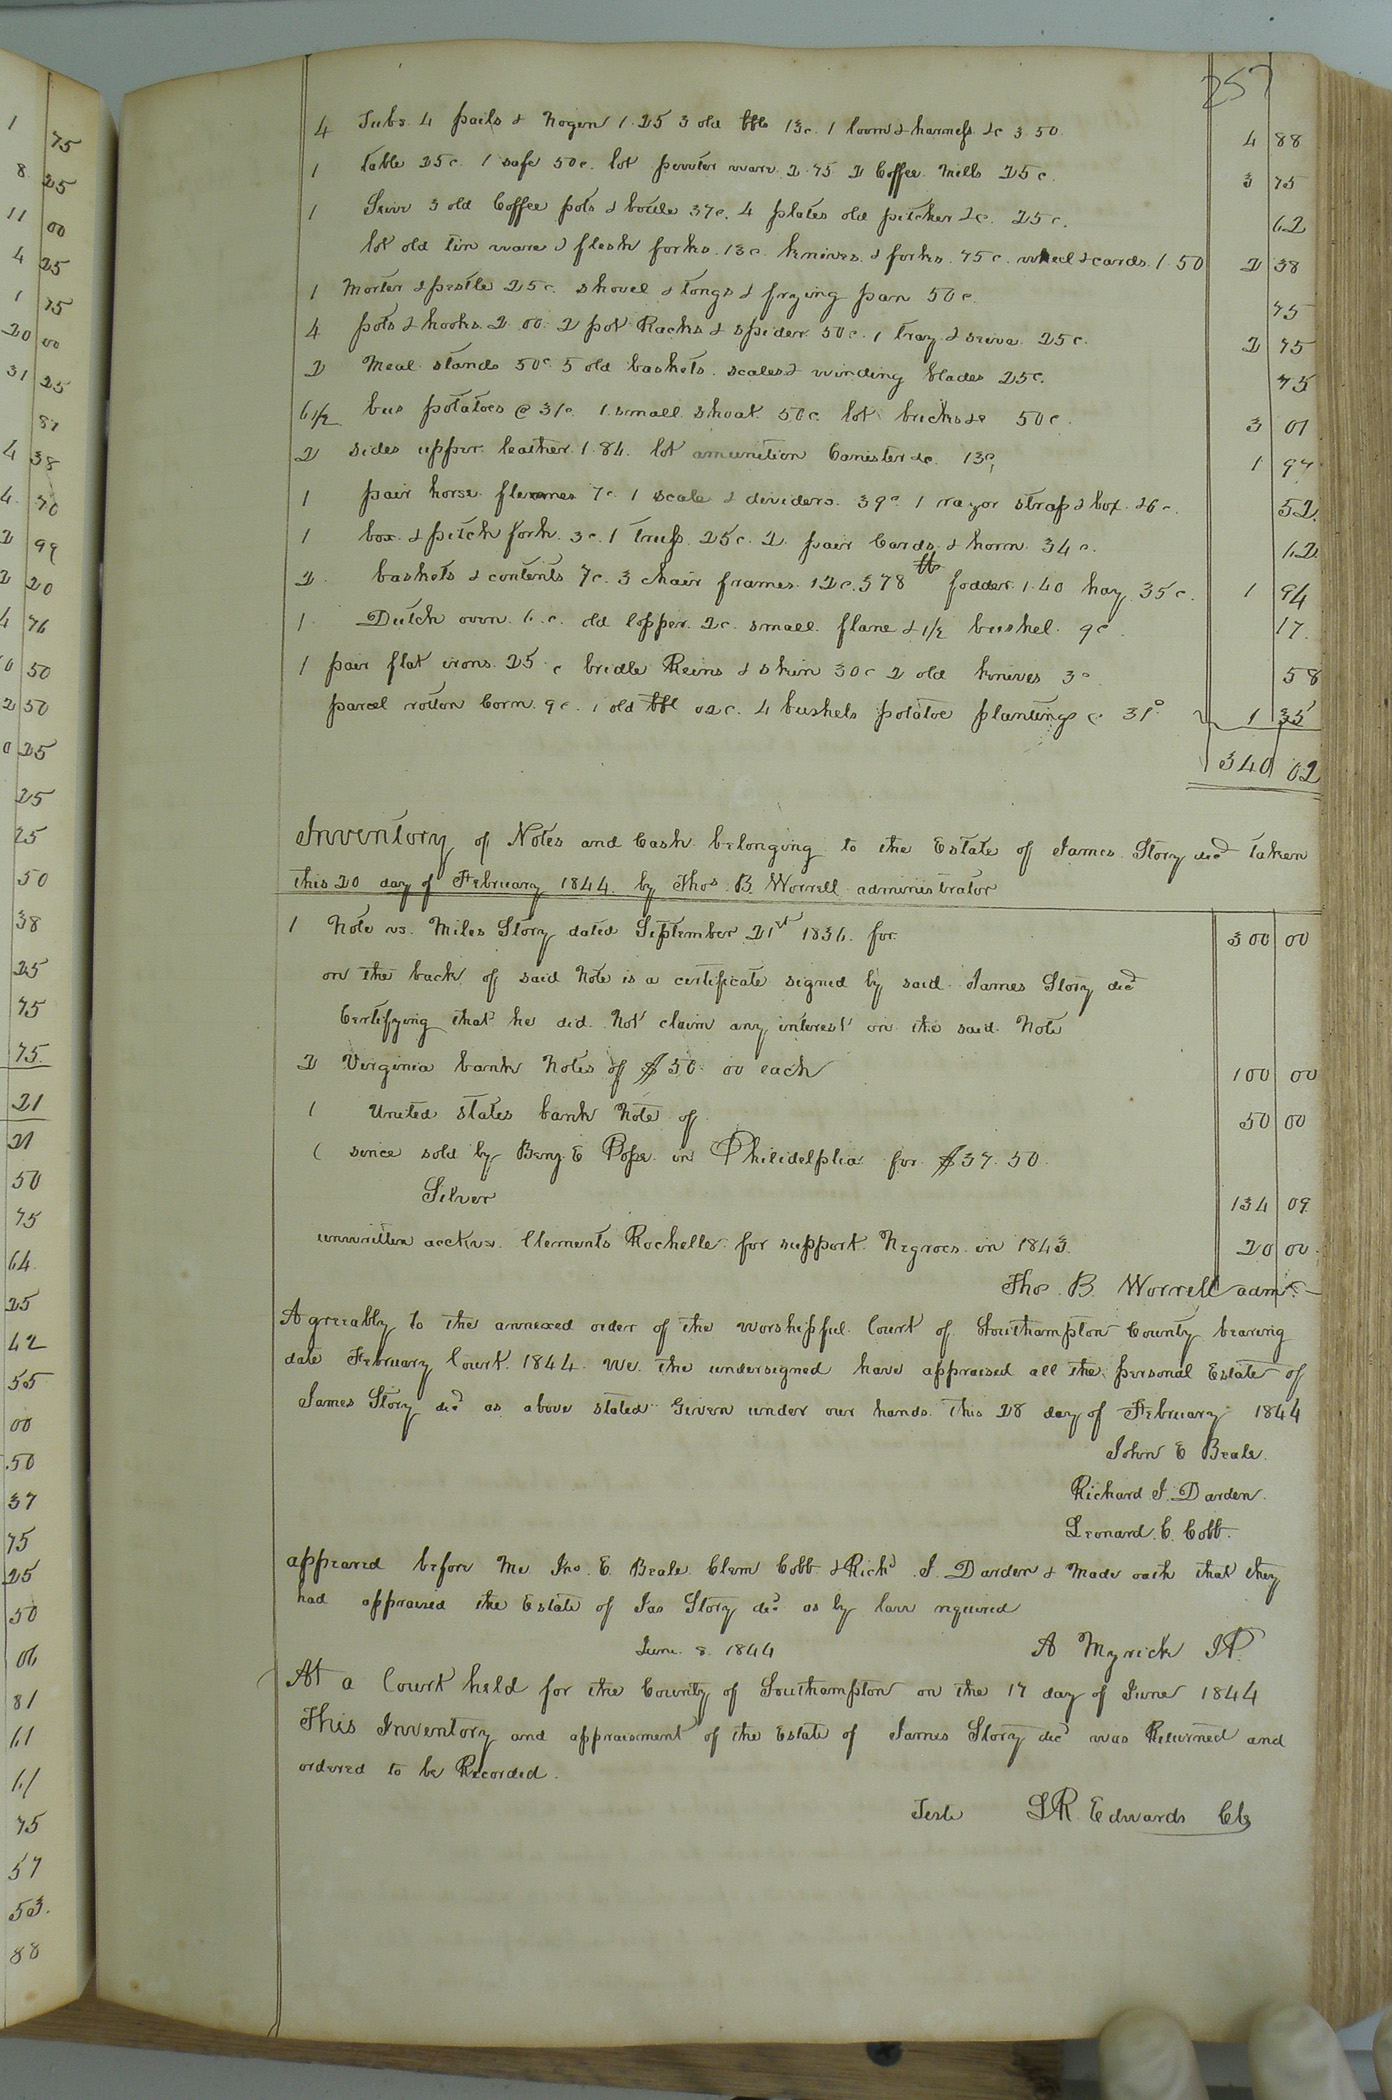 1 75
8 25
11 00
4 25
1 75
20 00
31 25
87
4 38
4 70
2 99
2 20
4 76
0 50
2 50
0 25
25
25
50
38
25
75
75
21
21
50
75
64
25
62
55
00
50
37
75
25
50
06
81
61
61
75
57
53
88
257
4 Tubs 4 pails & Nogen 1.25 3 old bbls 13c. 1 loom & harness &c 3.50 4 88
1 table 25c. 1 safe 50c. lot pewter ware 2.75 2 Coffee Mills 25c 3 75
1 Sieve 3 old Coffee pots & bottle 37c. 4 plates old pitcher &c. 25c. 62
lot old tin ware & flesh forks. 13c. knives & forks. 75c. wheel & cards. 1.50 2 38
1 Morter & pestle 25c. shovel & tongs & frying pan 50c. 75
4 pots & hooks 2.00. 2 pot Racks & spider 50c. 1 tray & sieve 25c. 2 75
2 Meal stands 50c 5 old baskets. scales & winding blades 25c. 75
6 1/2 bus potatoes @ 31c. 1 small shoat 50c lot bricks &c 50c 3 01
2 sides upper leather 1.84. lot amunition Canister &c. 13c 1 97
1 pair horse flemes 7c. 1 scale & dividers. 39c 1 razor strap & box. &6c. 52
1 box & pitch fork. 3c. 1 truss 25c. 2 pair Cards & horn 34c. 62
2 baskets & contents 7c. 3 chair frames. 12c. 378 lb fodder 1.40 hay 35c. 1 94
1 Dutch oven. 6.c. old lopper. 2c. small plane & 1/2 bushel 9c. 17
1 pair flat irons. 25c bridle Reins & skin 30c 2 old knives 3c 58
parcel rotton Corn. 9c. 1 old bbl 02c. 4 bushels potatoe plantings @ 31c 1 35
340 02
Inventory of Notes and Cash belonging to the Estate of James Story decd taken
this 20 day of February 1844 by Thos. B. Worrell administrator
1 Note vs. Miles Story dated September 21st 1836. for 300 00
on the back of said Note is a certificate signed by said James Story decd
Certifying that he did Not claim any interest on the said Note
2 Virginia bank Notes of $50.00 each 100 00
1 United states bank Note of 50 00
( since sold by Benj. E Pope in Philidelphia for $37.50
Silver 134 09
unwritten acct vs. Clements Rochelle for support Negroes in 1843. 20 00
Thos. B. Worrell admr.
Agreeably to the annexed order of the worshipful Court of Southampton County bearing
date February Court 1844 We the undersigned have appraised all the personal Estate of
James Story decd as above stated Given under our hands this 28 day of February 1844
John E Beale.
Richard J. Darden.
Leonard C. Cobb.
appeared before Me Jno. E. Beale Clem Cobb & Richd J. Darden & Made oath that they
had appraised the Estate of Jas Story decd as by law required
June. 8. 1844 A Myrick J P.
At a Court held for the County of Southampton on the 17 day of June 1844
This Inventory and appraisment of the Estate of James Story decd was Returned and
ordered to be Recorded.
Teste L R Edwards Clk